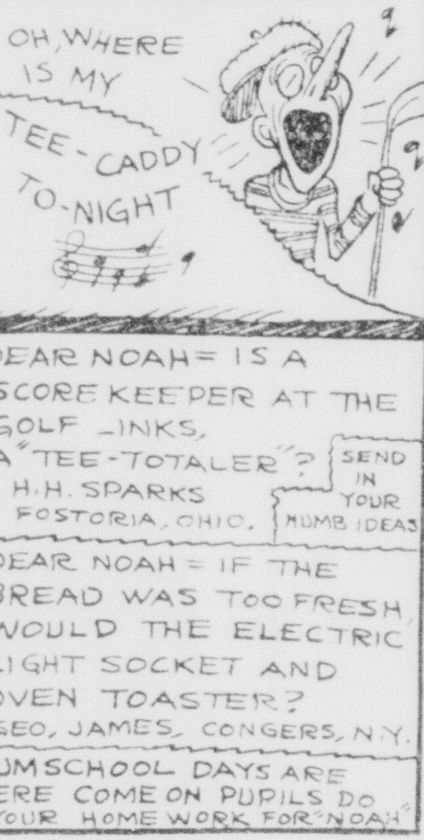 OH, WHERE
IS MY
TEE-CADDY
TO-NIGHT
DEAR NOAH= IS A
SCORE KEEPER AT THE
GOLF LINKS,
A "TEE-TOTALER"?
H.H. SPARKS
FOSTORIA, OHIO.
SEND
IN
YOUR
NUMB IDEAS
DEAR NOAH= IF THE
BREAD WAS TOO FRESH,
WOULD THE ELECTRIC
LIGHT SOCKET AND
OVEN TOASTER?
GEO, JAMES, CONGERS, N.Y.
UMSCHOOL DAYS ARE
ERE COME ON PUPILS DO
YOUR HOME WORK FOR "NOAH"